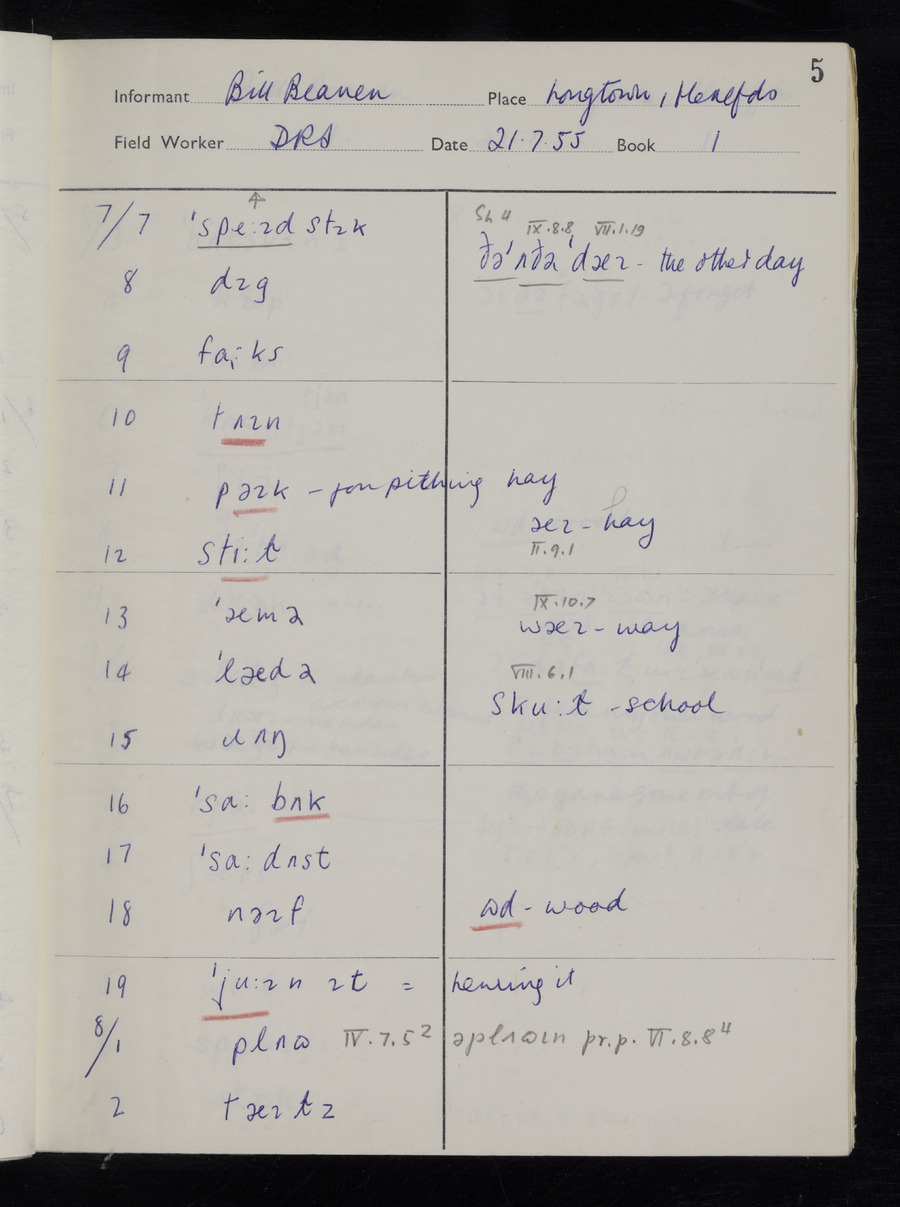 5
Informant Bill Beavan Place Longtown, Herefds
Field Worker DRS Date 21.7.55 Book 1
7/7 ˈspeːɪd stɪk
Sh 4 IX.8.8 VII.1.19
ðəˈʌðə ˈdæɪ - the other day
8 dɪg
9 ks
10 tʌɪn
11 pəɪk - for pitching hay
æɪ - hay
12 stiːɫ
II.9.1
13 ˈæmə
IX.10.7
wæɪ - way
14 ˈlædə
VIII.6.1
skuːɫ - school
15 ɹʌŋ
16 ˈsaː bʌk
17 ˈsaː dʌst
18 nəɪf
ɷd - wood
19 ˈjuːɪn ɪt = hewing it
8/1 plʌɷ IV.7.5² əplʌɷɪn pr.p. VI.8.8⁴
2 tæɪɫz